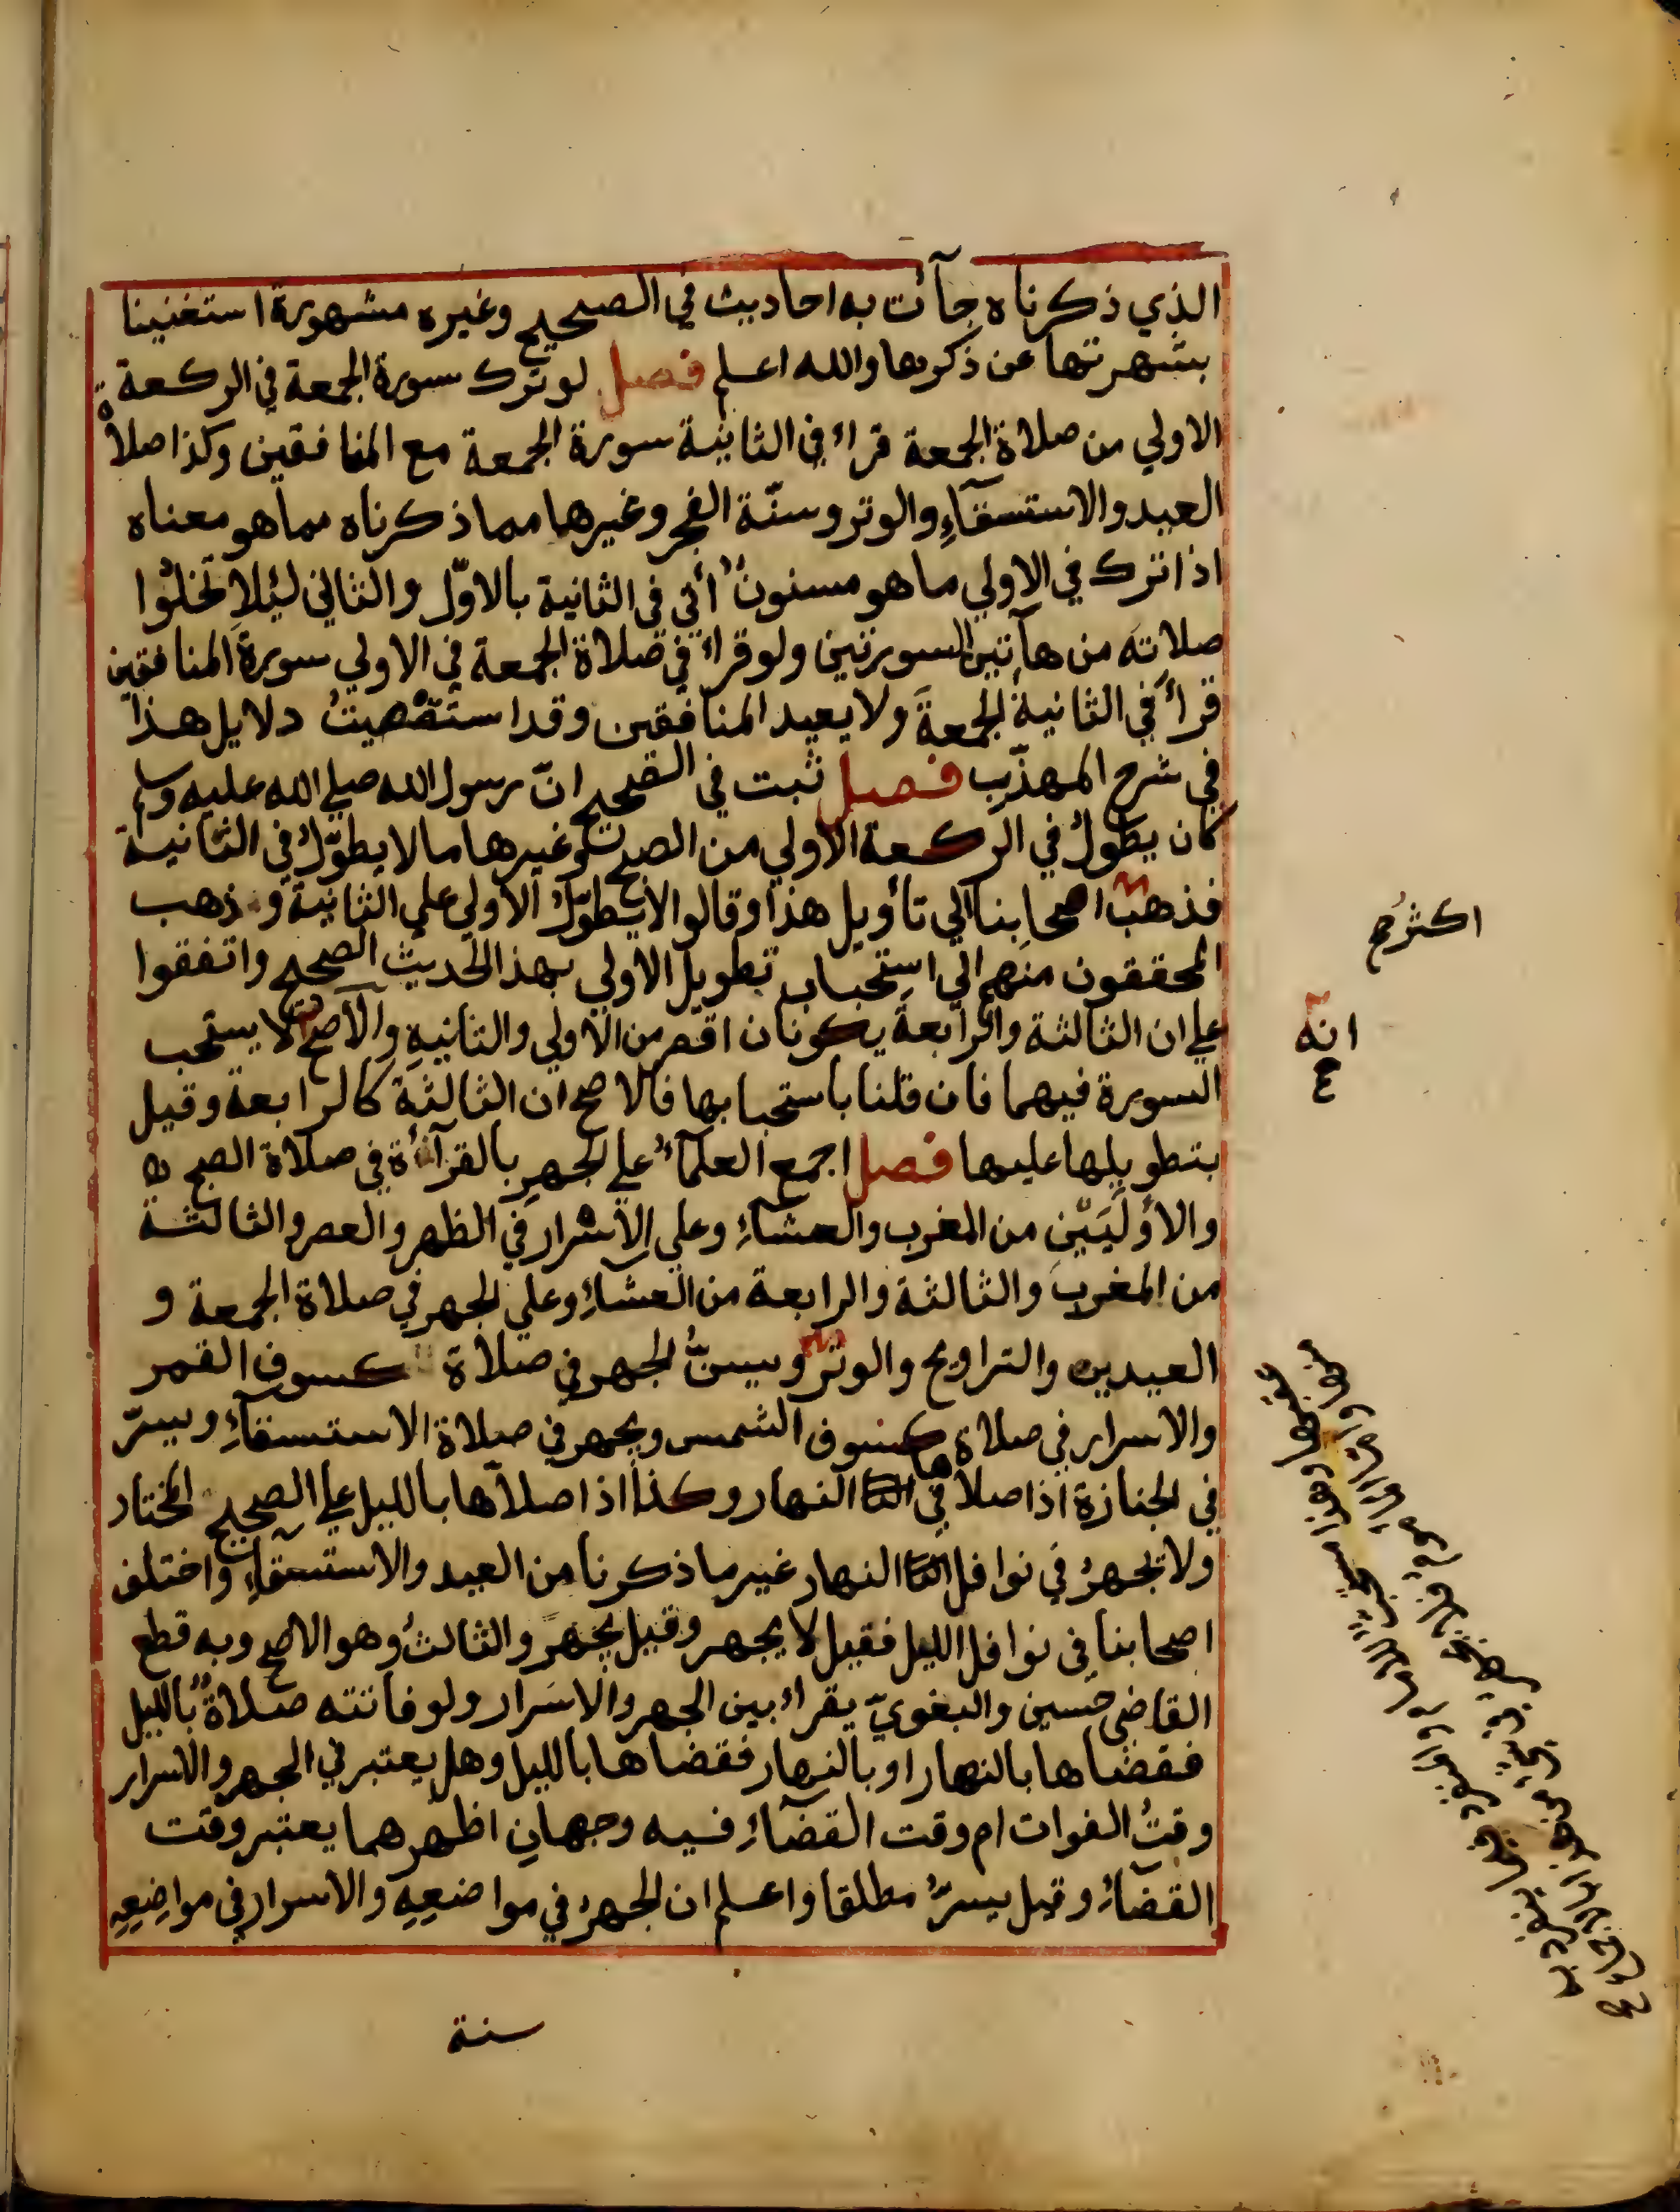 الذي ذكرناه جآئت به احاديث في الصحيح وغيره مشهورة استغنينا
بشهرتها عن ذكرها والله اعلم فصل لو ترك سورة الجمعة في الركعة
الاولي من صلاة الجمعة قراء في الثانية سورة الجمعة مع المنافقين وكذا صلاة
العيد والاستسقآءِ والوتر وسنّة الفجر وغيرها مما ذكرناه مما هو معناه
اذا ترك في الاولي ما هو مسنونٌ أتي في الثانية بالاوّل والثاني ليُلا تخلُوا
صلاته من هآتين السورتين ولو قراء في صلاة الجمعة في الاولي سورة المنافقين
قرأ في الثانيةِ الجمعةَ ولا يعيد المنافقين وقد استَقْصيتُ دلايل هذا
في شرح المهذّب فصل ثبت في الصحيح انّ رسول الله صلي الله عليه وسلم
كان يطول في الركعة الاولي من الصبح وغيرها ما لا يطوّل في الثانية
فذهب اصحابنا الي تأويل هذا وقالوا لا يطوّل الاولي علي الثانية وذهب
المحققون منهم الي استحباب تطويل الاولي بهذا الحديث الصحيح واتفقوا
علي ان الثالثة والرابعة يكونان اقصر من الاولي والثانيةِ والاصح لا يستحب
السورة فيهما فان قلنا باستحبابها فالاصح ان الثالثة كالرابعة وقيل
بتطويلها عليها فصل اجمع العلمآءُ علي الجهرِ بالقرآءة في صلاة الصبح
والأوليَيْن من المغرب والعشآءِ وعلي الاسْرار في الظهر والعصر والثالثة
من المغرب والثالثة والرابعة من العشآءِ وعلي الجهر في صلاة الجمعة و
العيدين والتراويح والوتر ويسنُّ الجهر في صلاة كسوف القمر
والاسرار في صلاة كسوف الشمس ويجهر في صلاة الاستسقآءِ ويسرّ
في الجنازة اذا صلاها في النهار وكذا اذا صلاّها بالليل علي الصحيح المختار
ولا يجهرُ في نوافل النهار غير ما ذكرنا من العيد والاستسقآءِ واختلف
اصحابنا في نوافل الليل فقيل لا يجهر وقيل يجهر والثالثُ وهو الاصح وبه قطع
القاضي حسين والبغويّ يقراء بين الجهر والاسَرار ولو فاتته صلاةٌ بالليل
فقضاها بالنهار او بالنهار فقضاها بالليل وهل يعتبر في الجهر والاسرار
وقتُ الفوات ام وقت القضآءِ فيه وجهانِ اظهرهما يعتبر وقت
القضآءِ وقيل يسرُّ مطلقا واعلم ان الجهرُ في مواضعِهِ والاسرار في مواضِعِهِ
سنة
اكثرُهم
انه